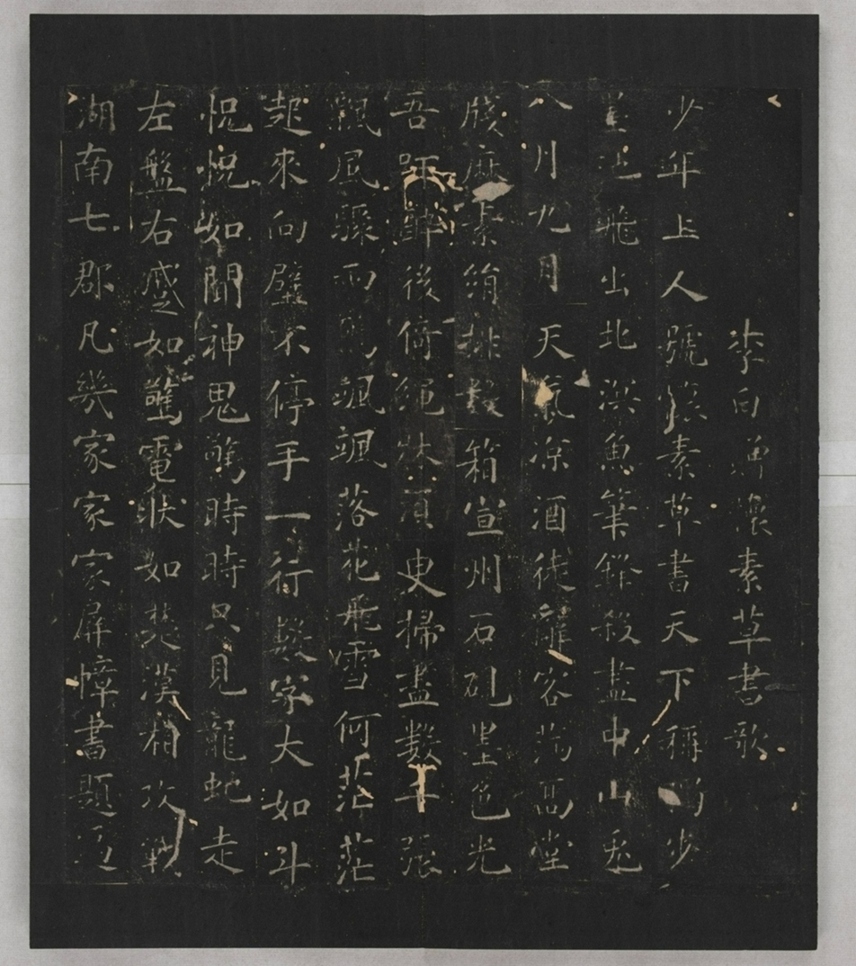 李白贈懷素草書歌
少年上人號懷素草書天下稱獨步
墨池飛出北溟魚筆鋒殺盡中山兔
八月九月天氣涼酒徒辭客滿高堂
牋麻素絹排數箱宣州石硯墨色光
吾師醉後倚繩牀須臾掃盡数千張
飄風驟雨驚颯颯落花飛雪何茫茫
起來向壁不停手一行數字大如斗
怳怳如聞神鬼驚時時只見龍虵走
左盤右蹙如驚電狀如楚漢相攻戰
湖南七郡凡幾家家家屏幛書題遍